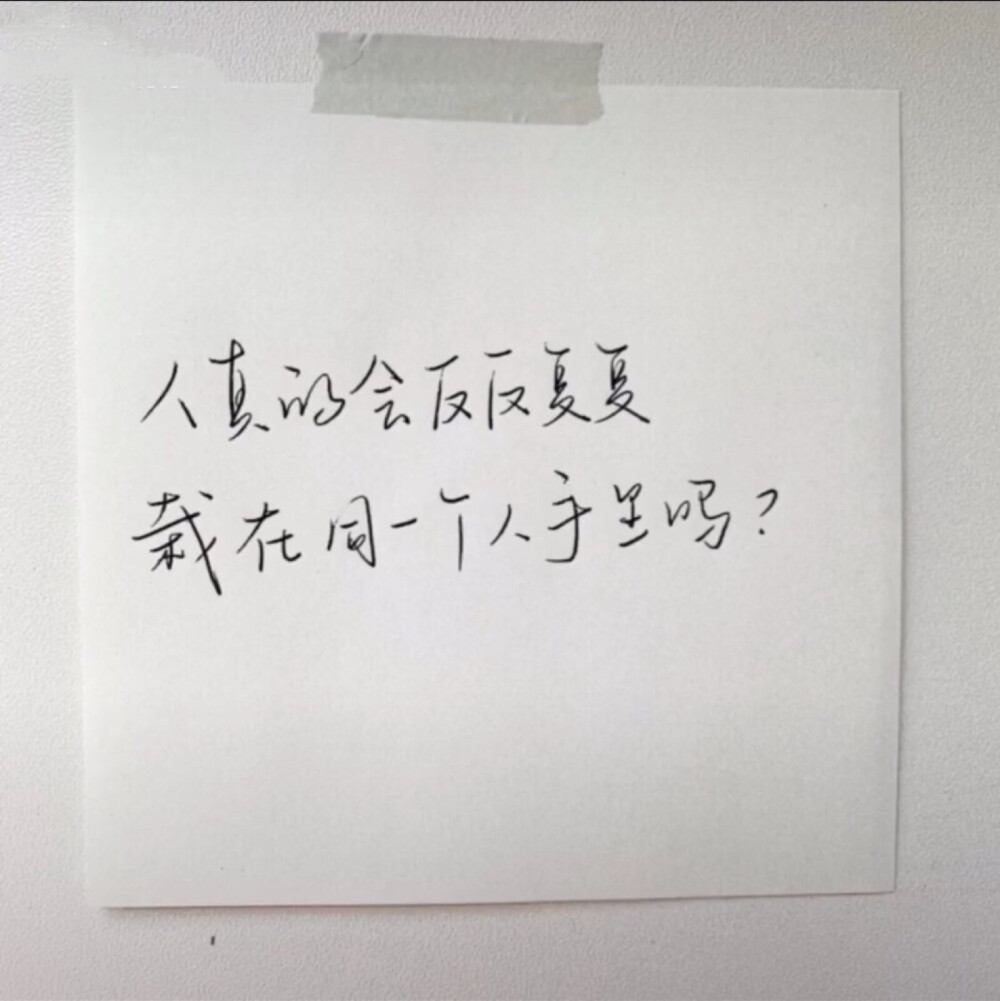 人真的会反反复复
栽在同一个人手里吗?